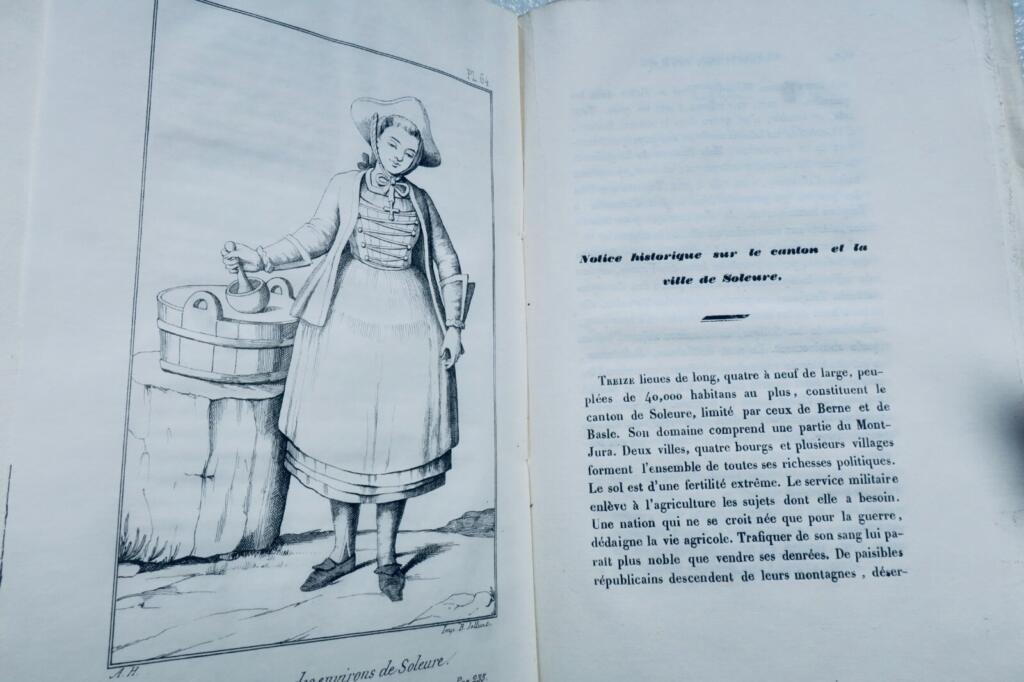 Pl. 64
A. H.
Imp. B.
des environs de Soleure.
Pag. 233.
Notice historique sur le canton et la
ville de Soleure.
TREIZE lieues de long, quatre à neuf de large, peu-
plées de 40,000 habitans au plus, constituent le
canton de Soleure, limité par ceux de Berne et de
Basle. Son domaine comprend une partie du Mont-
Jura. Deux villes, quatre bourgs et plusieurs villages
forment l'ensemble de toutes ses richesses politiques.
Le sol est d'une fertilité extrême. Le service militaire
enlève à l'agriculture les sujets dont elle a besoin.
Une nation qui ne se croit née que pour la guerre,
dédaigne la vie agricole. Trafiquer de son sang lui pa-
raît plus noble que vendre ses denrées. De paisibles
républicains descendent de leurs montagnes, déser-